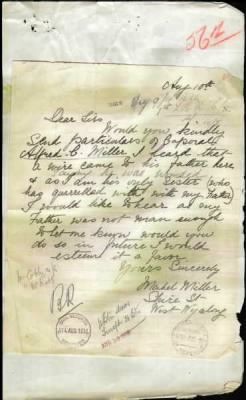 56
Aug 10th
Dear Sirs
Would you kindly
Send particulars of Corporal
Alfred C. Miller I heard that
a wire came to his Father here
saying he was wounded
& as I am his only Sister (who
has quarrelled with with my Father)
I would like to hear as my
Father was not man enough
to let me know would you
do so in future I would
esteem it a favor
Yours Sincerely
Mabel Miller
Shire St
West Wyalong
BR